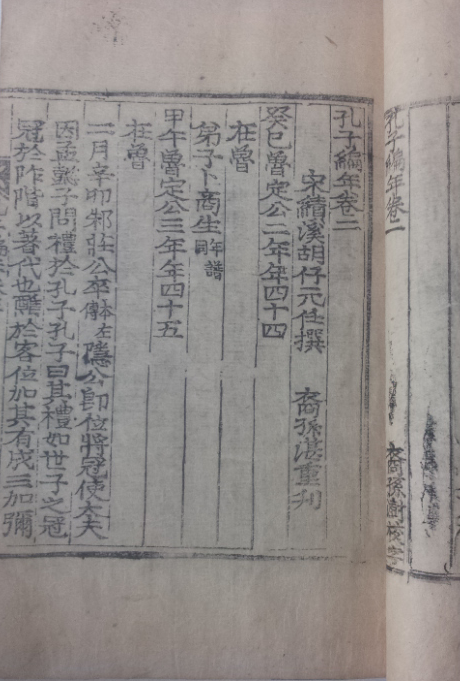 孔子編年卷二
裔孫樹校字
孔子編年卷二
宋績溪胡仔元任撰 裔孫湛重刊
癸巳魯定公二年年四十四
在魯
弟子卜商生年譜
甲午魯定公三年年四十五
在魯
二月辛卯邾莊公卒左傳隱公卽位將冠使大夫
因孟懿子問禮於孔子孔子曰其禮如世子之冠
冠於阼階以著代也醮於客位加其有成三加彌